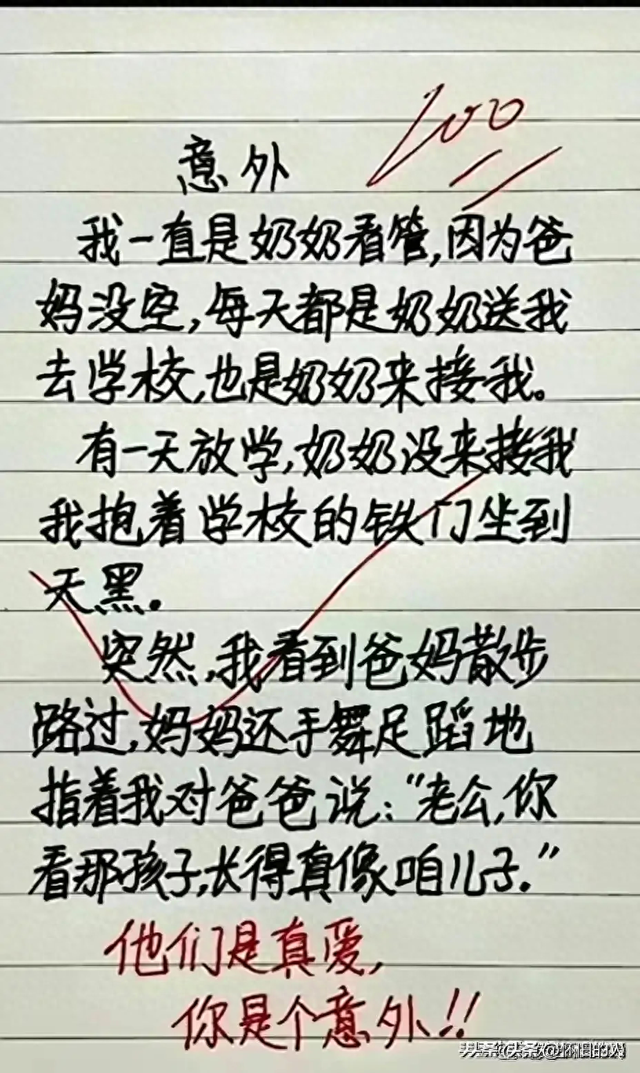 100
意外
我一直是奶奶看管,因为爸
妈没空,每天都是奶奶送我
去学校,也是奶奶来接我。
有一天放学,奶奶没来接我
我抱着学校的铁门坐到
天黑.
突然,我看到爸妈散步
路过,妈妈还手舞足蹈地
指着我对爸爸说:“老公,你
看那孩子,长得真像咱儿子.”
他们是真爱,
你是个意外!!